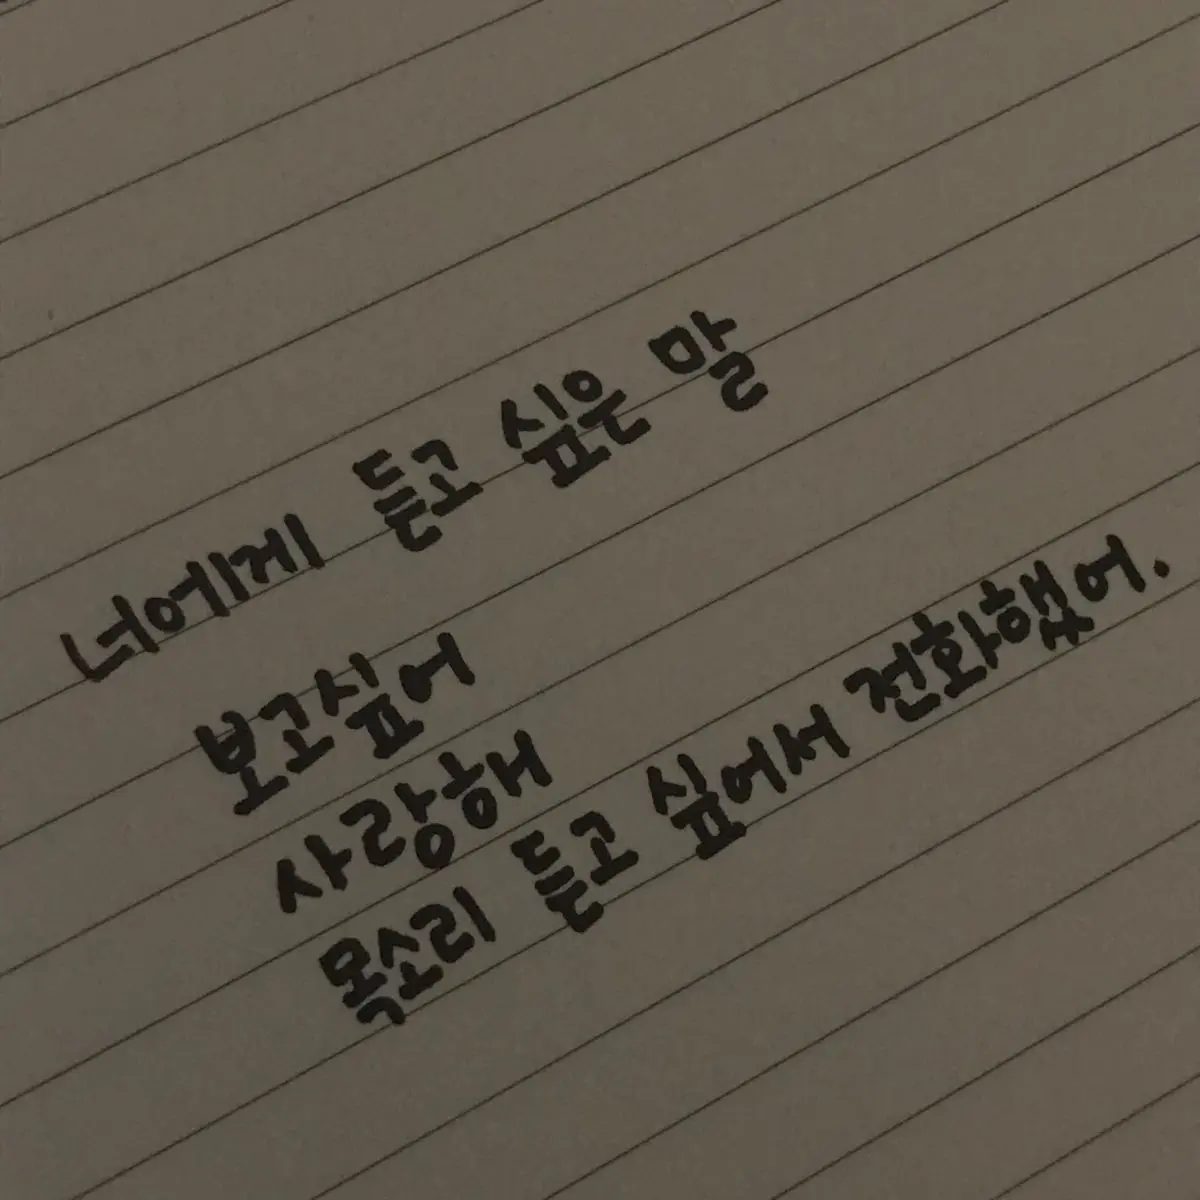 너에게 듣고 싶은 말
보고싶어
사랑해
목소리 듣고 싶어서 전화했어.